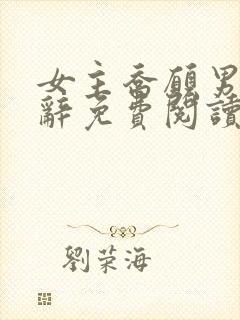 女主喬願男
辭免費閱讀
劉荣海